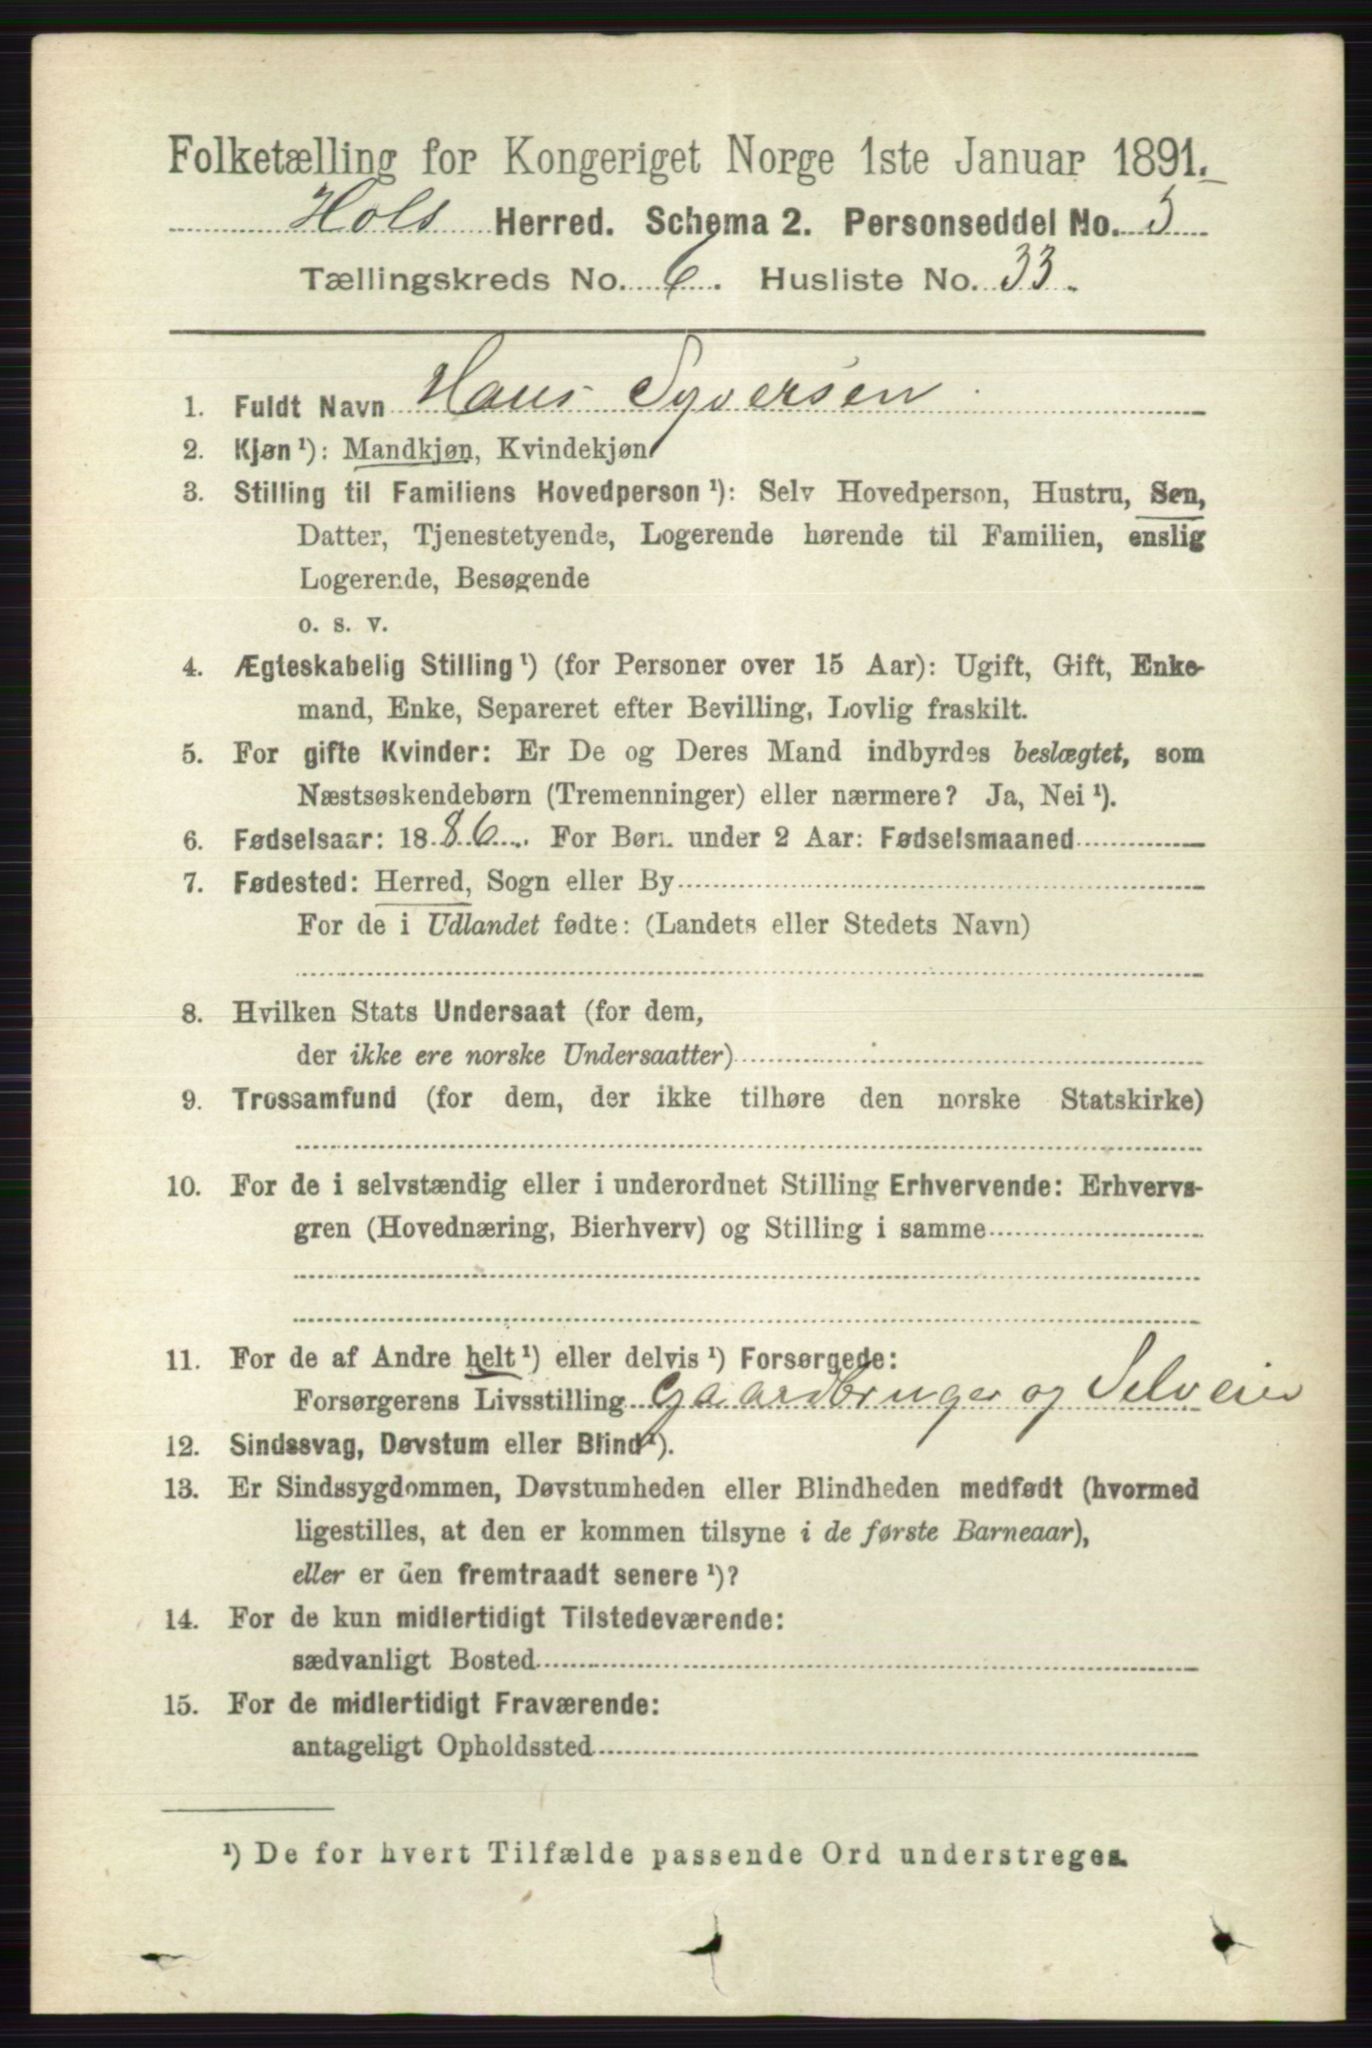 Folketælling for Kongeriget Norge 1ste Januar 1891.
Hols Herred. Schema 2. Personseddel No. 5
Tællingskreds No. 6. Husliste No. 33.
1. Fuldt Navn Hans Syversen
2. Kjøn ¹): Mandkjøn, Kvindekjøn
3. Stilling til Familiens Hovedperson ¹): Selv Hovedperson, Hustru, Søn,
Datter, Tjenestetyende, Logerende hørende til Familien, enslig
Logerende, Besøgende
o. s. v.
4. Ægteskabelig Stilling ¹) (for Personer over 15 Aar): Ugift, Gift, Enke-
mand, Enke, Separeret efter Bevilling, Lovlig fraskilt.
5. For gifte Kvinder: Er De og Deres Mand indbyrdes beslægtet, som
Næstsøskendebørn (Tremenninger) eller nærmere? Ja, Nei ¹).
6. Fødselsaar: 1886. For Børn under 2 Aar: Fødselsmaaned
7. Fødested: Herred, Sogn eller By
For de i Udlandet fødte: (Landets eller Stedets Navn)
8. Hvilken Stats Undersaat (for dem,
der ikke ere norske Undersaatter)
9. Trossamfund (for dem, der ikke tilhøre den norske Statskirke)
10. For de i selvstændig eller i underordnet Stilling Erhvervende: Erhvervs-
gren (Hovednæring, Bierhverv) og Stilling i samme
11. For de af Andre helt ¹) eller delvis ¹) Forsørgede:
Forsørgerens Livsstilling Gaardbruger og Selveier
12. Sindssvag, Døvstum eller Blind ¹).
13. Er Sindssygdommen, Døvstumheden eller Blindheden medfødt (hvormed
ligestilles, at den er kommen tilsyne i de første Barneaar),
eller er den fremtraadt senere ¹)?
14. For de kun midlertidigt Tilstedeværende:
sædvanligt Bosted
15. For de midlertidigt Fraværende:
antageligt Opholdssted
¹) De for hvert Tilfælde passende Ord understreges.